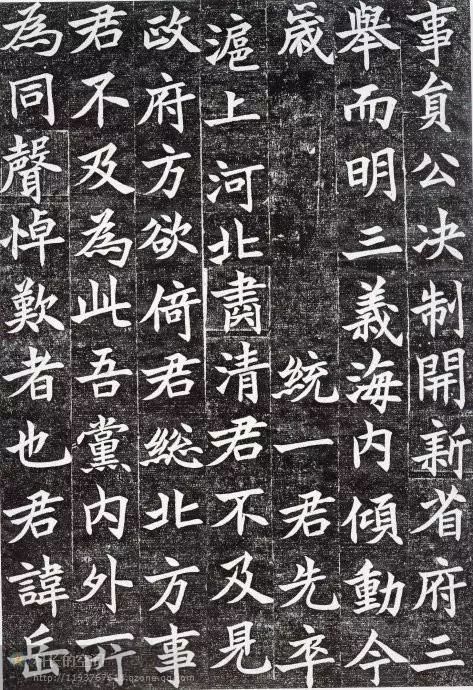 事貟公决制開新省府三
舉而明三義海内傾動今
歲統一君先卒
滬上河北肅清君不及見
政府方欲倚君総北方事
君不及為此吾黨内外所
為同聲悼歎者也君諱岳